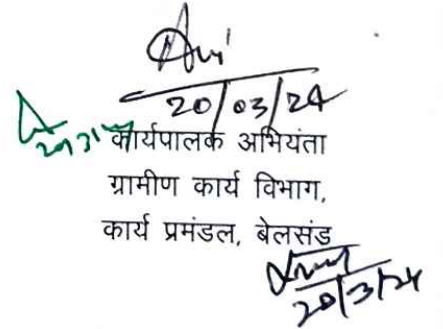 20/03/24
कार्यपालक अभियंता
ग्रामीण कार्य विभाग,
कार्य प्रमंडल, बेलसंड
20/3/24